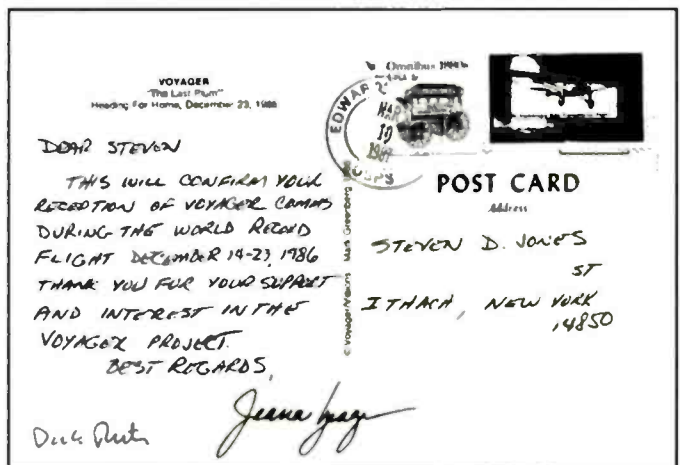 VOYAGER
"The Last Plum"
Heading For Home, December 23, 1986
DEAR STEVEN
THIS WILL CONFIRM YOUR
RECEPTION OF VOYAGER COMMS
DURING THE WORLD RECORD
FLIGHT DECEMBER 14-23, 1986
THANK YOU FOR YOUR SUPPORT
AND INTEREST IN THE
VOYAGER PROJECT.
BEST REGARDS,
Dick Rutan
Jeana Yeager
© Voyager/Visions Mark Greenberg
Omnibus 1880s
EDWARDS
MAR
10
1987
USPS
POST CARD
Address
STEVEN D. JONES
ST
ITHACA, NEW YORK
14850